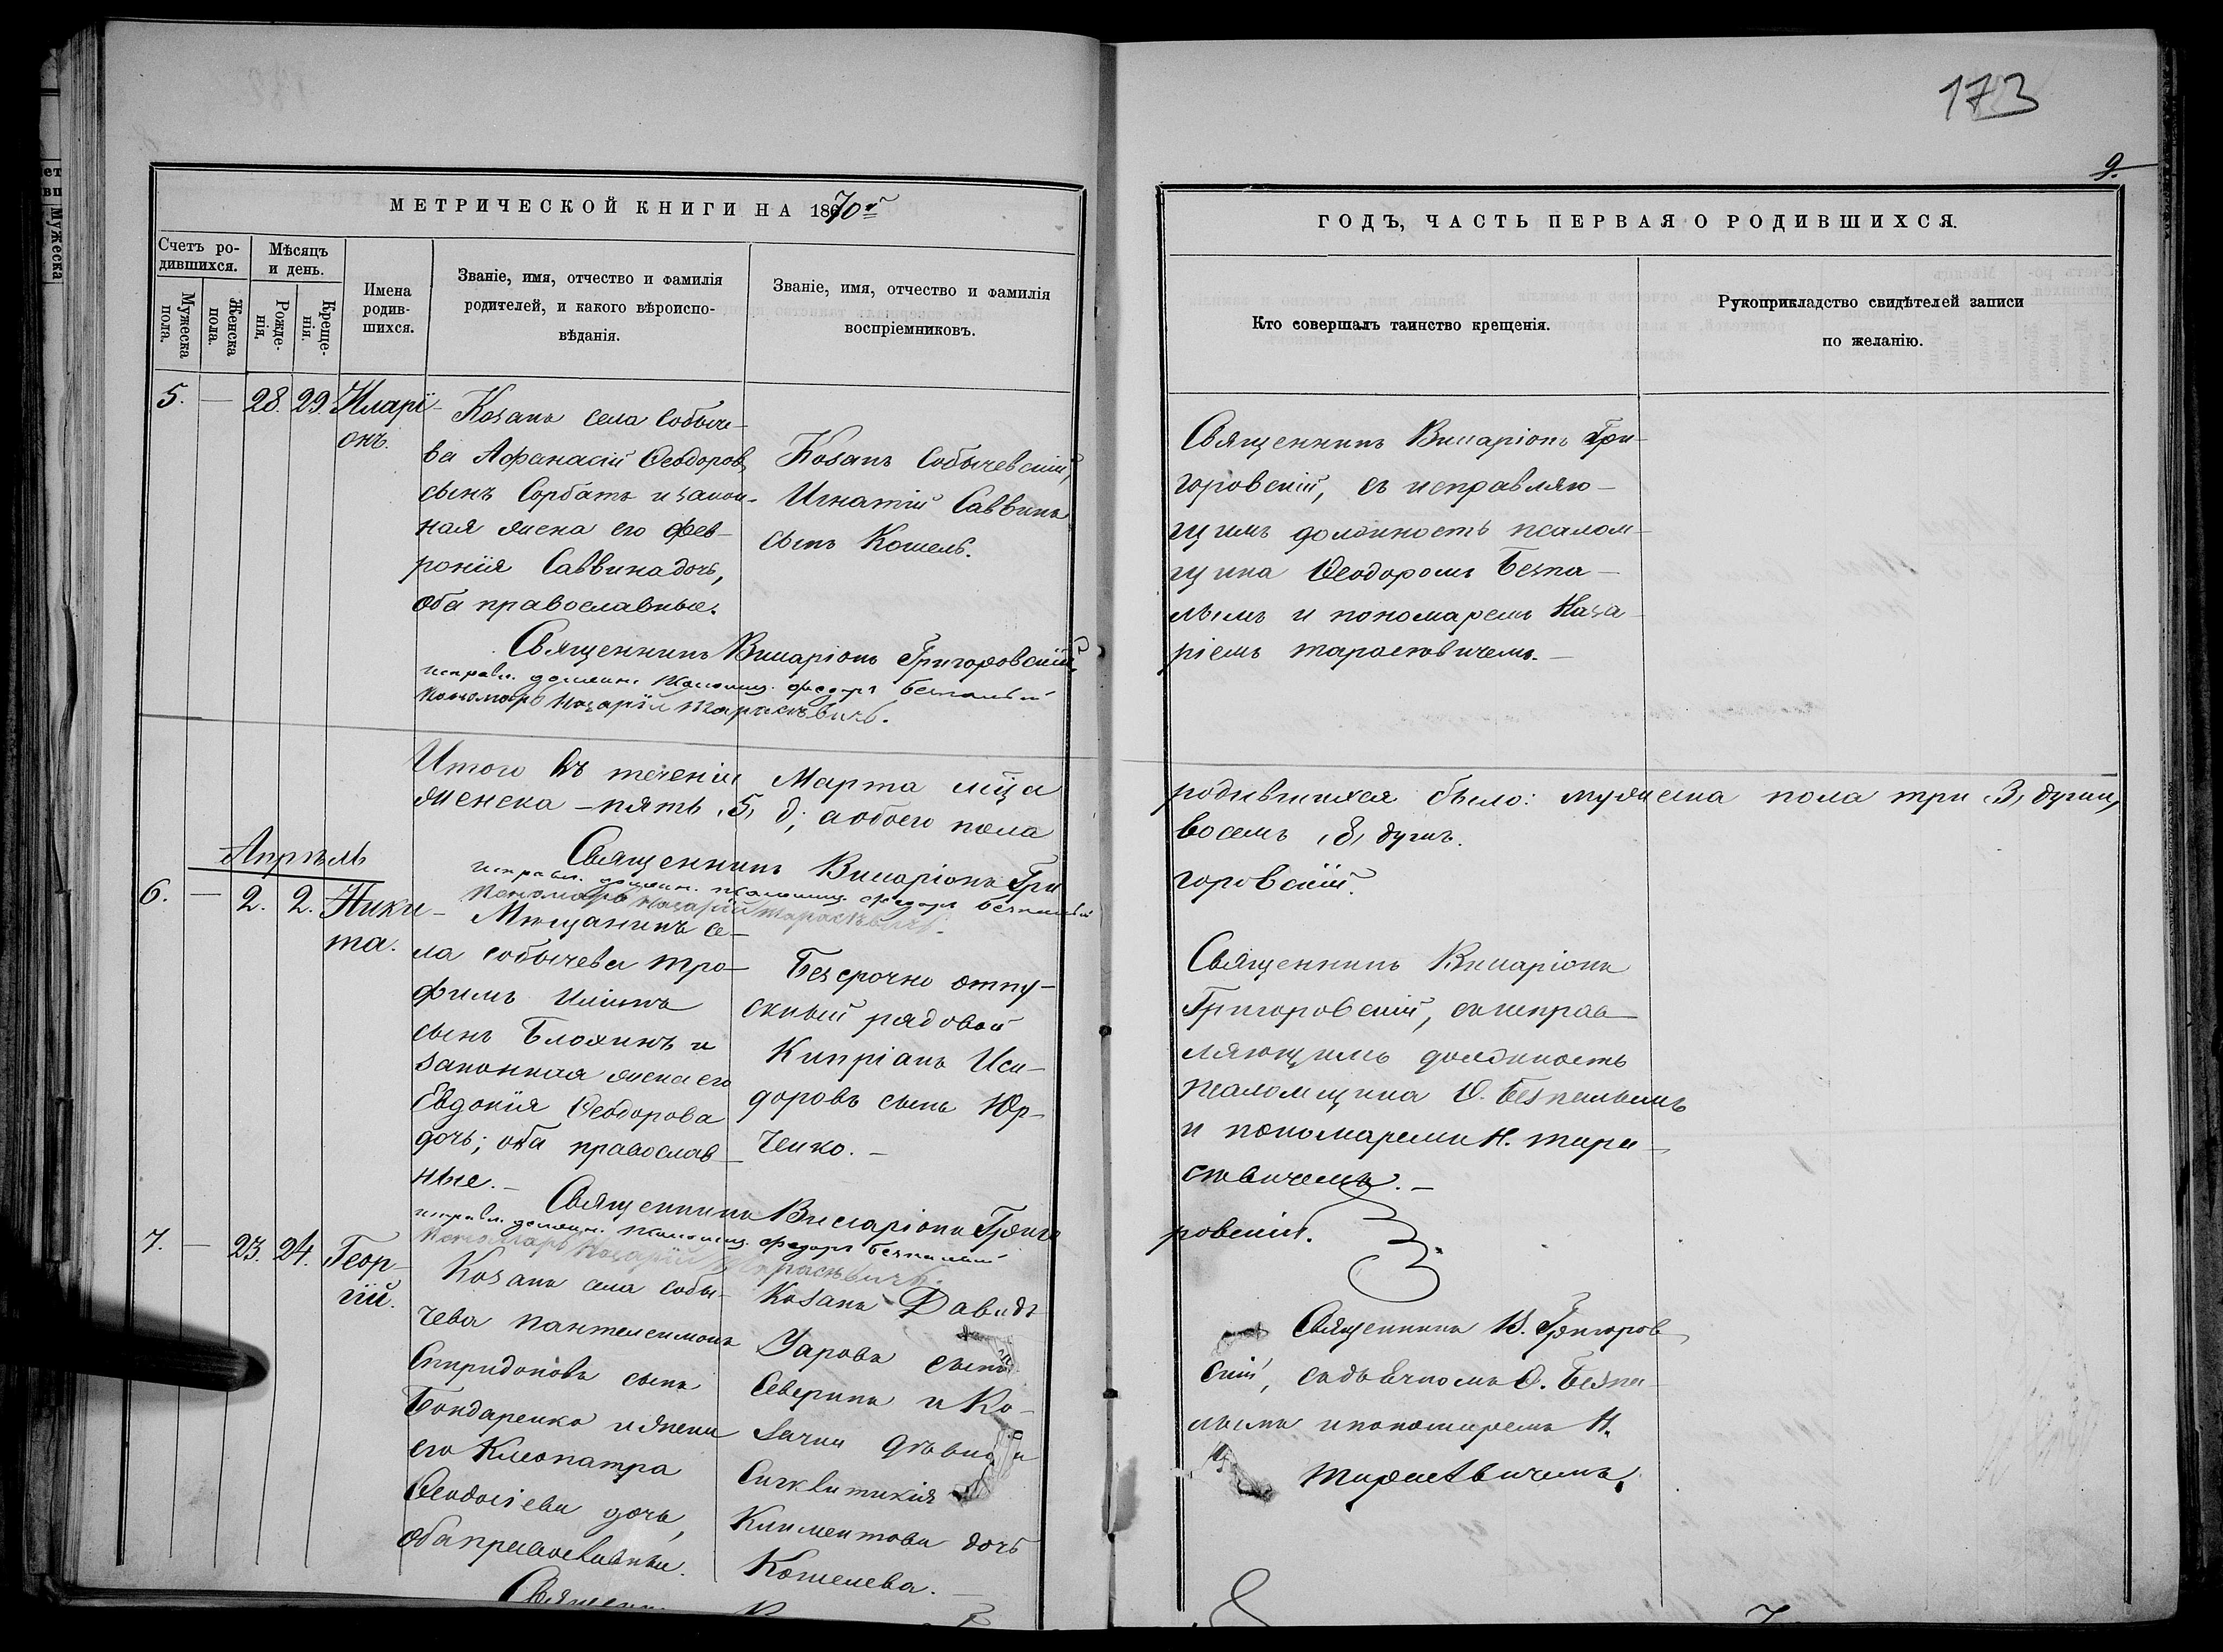 173
9.
МЕТРИЧЕСКОЙ КНИГИ НА 1870 г
ГОДЪ, ЧАСТЬ ПЕРВАЯ О РОДИВШИХСЯ.
Счетъ ро-
дившихся.
Мужеска
пола.
Женска
пола.
Мѣсяцъ
и день.
Рожде-
нія.
Креще-
нія.
Имена
родив-
шихся.
Званіе, имя, отчество и фамилія
родителей, и какого вѣроиспо-
вѣданія.
Званіе, имя, отчество и фамилія
воспріемниковъ.
Кто совершалъ таинство крещенія.
Рукоприкладство свидѣтелей записи
по желанію.
5. — 28. 29. Иларі-
онъ.
Козакъ села Собыче-
ва Афанасій Ѳеодоровъ
сынъ Сорбатъ и закон-
ная жена его Фев-
ронія Саввина дочь,
оба православные.
Козакъ Собычевскій,
Игнатій Саввинъ
сынъ Кошель.
Священникъ Виссаріонъ Гри-
горовскій, съ исправляю-
щимъ должность псалом-
щика Ѳеодоромъ Безпа-
лымъ и пономаремъ Наза-
ріемъ Тарасевичемъ.
Священникъ Виссаріонъ Григоровскій,
исправл. должн. псаломщ. Федоръ Безпалый
Пономарь Назарій Тарасевичъ.
Итого въ теченіи Марта мца родившихся было: мужеска пола три, 3, души,
женска — пять, 5, д; а обоего пола восемь, 8, душъ.
Священникъ Виссаріонъ Григоровскій.
исправл. должн. псаломщ. Федоръ Безпалый
Пономарь Назарій Тарасевичъ.
Апрѣль
6. — 2. 2. Ники-
та.
Мѣщанинъ се-
ла Собычева Тро-
фимъ Иліинъ
сынъ Блохинъ и
законная жена его
Евдокія Ѳеодорова
дочь; оба православ-
ные.
Безсрочно отпу-
скный рядовой
Кипріанъ Иси-
доровъ сынъ Юр-
ченко.
Священникъ Виссаріонъ
Григоровскій, съ исправ-
ляющимъ должность
псаломщика Ѳ. Безпалымъ
и пономаремъ Н. Тара-
севичемъ.
Священникъ Виссаріонъ Григоровскій.
исправл. должн. псаломщ. Федоръ Безпалый
Пономарь Назарій Тарасевичъ.
7. — 23. 24. Геор-
гій.
Козакъ села Собы-
чева Пантелеимонъ
Спиридоновъ сынъ
Бондаренко и жена
его Клеопатра
Ѳеодосіева дочь,
оба православные.
Козакъ Давидъ
Уаровъ сынъ
Северинъ и Ко-
зачка дѣвица
Синклитикія
Климентова дочь
Кошелева.
Священникъ В. Григоров-
скій, съ дьячкомъ Ѳ. Безпа-
лымъ и пономаремъ Н.
Тарасевичемъ.